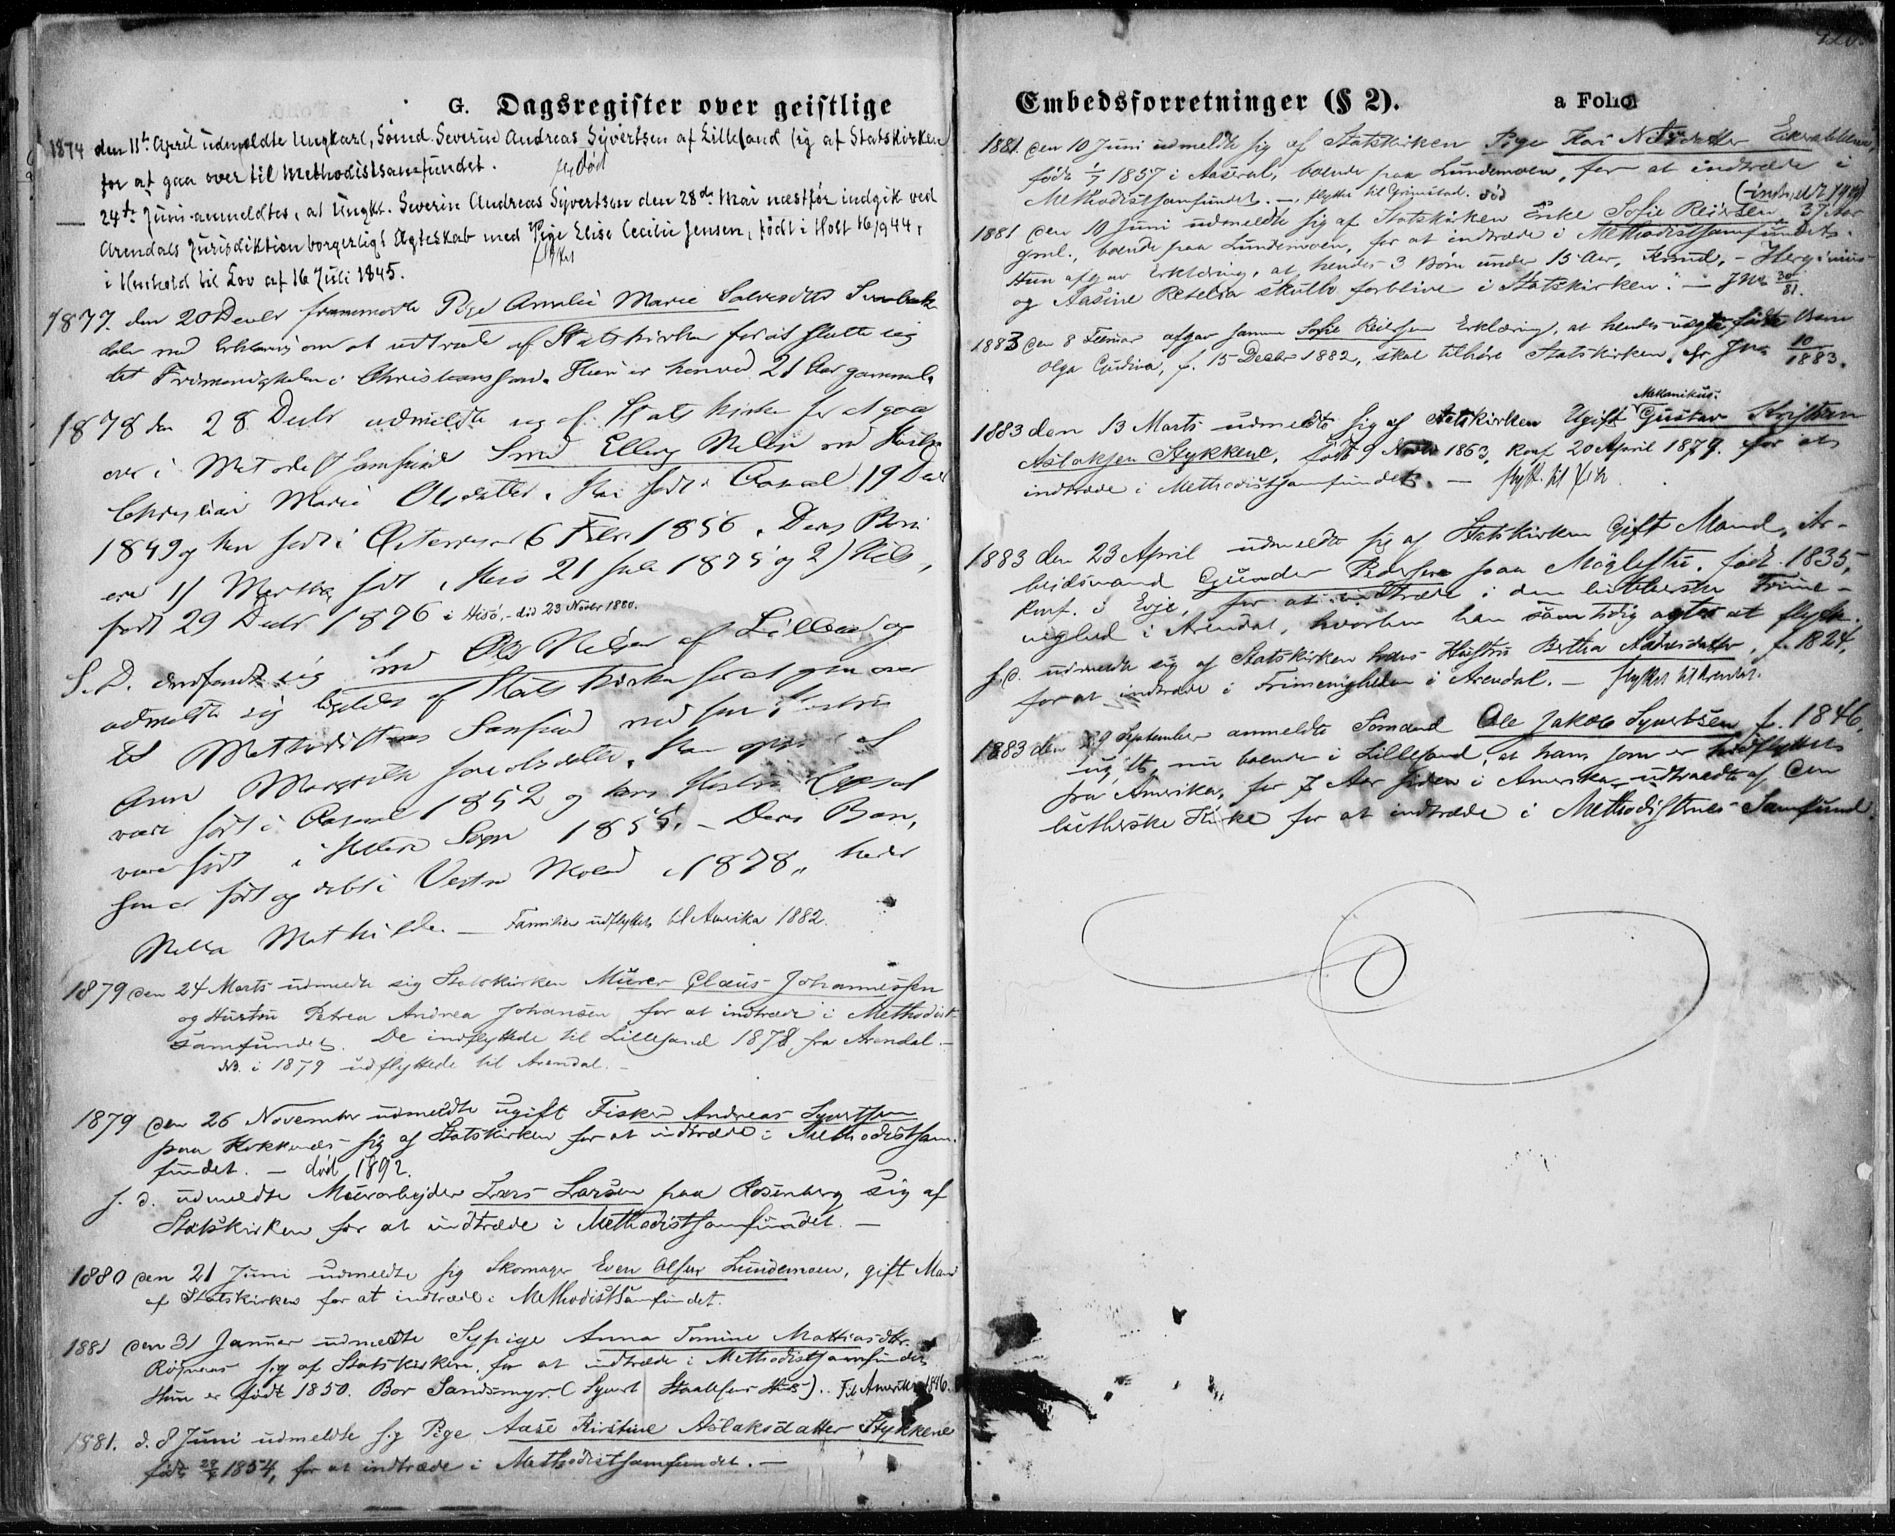 G. Dagsregister over geistlige
1874 den 11te April udmeldte Ungkarl, Sömd. Severin Andreas Sijvertsen af Lillesand sig af Statskirken
for at gaa over til Methodistsamfundet. død
24de Juni anmeldtes, at Ungkr. Severin Andreas Sijvertsen den 28de Mai næstfør indgik ved
Arendals Jurisdiktion borgerligt Ægteskab med Pige Elise Cecilie Jensen, født i Holt 16/9 44,
i Henhold til Lov af 16 Juli 1845.
1877. den 20 Decbr fremmødte Pige Amalie Marie Salvesdtr
med Erklæring om at udtræde af Statskirken for at slutte sig
til Frimenigheden i Christianssand. Hun er henved 21 Aar gammel.
1878 den 28 Decbr udmeldte sig af Statskirken for at gaa
over i Metodistsamfund Smed Ellef Nelsen med Hustru
Christiane Marie Olsdatter. Han født i 19 Decbr
1849 og hun født i Østerrisør 6 Febr 1856. Deres Børn
ere 1) Martha født i Hisø 21 Juli 1875 og 2) Nils,
født 29 Decbr 1876 i Hisö, - død 23 Novbr 1880.
S. D. indfandt sig Smed Ole Nelsen af Lillesand og
udmeldte sig ligeledes af Statskirken for at gaa over
til Methodisternes Samfund med sin Hustru
Anne Margrethe Jacobsdatter. Han opgives at
være født i 1852 og hans Hustru opgives at
være født i Sogn 1855. - Deres Barn,
som er født og døbt i Vestre Moland 1878, heder
Nella Mathilde. - Familien udflyttet til Amerika 1882.
1879 den 24 Marts udmeldte sig Statskirken Murer Claus Johannessen
og Hustru Petrea Andrea Johansen for at indtræde i Methodist-
samfundet. De indflyttede til Lillesand 1878 fra Arendal. -
NB. i 1879 udflyttede til Arendal. -
1879 den 26 November udmeldte ugift Fisker Andreas Syvertsen
paa Kokkenes sig af Statskirken for at indtræde i Methodistsam-
fundet. - död 1892.
s. d. udmeldte Murarbejder Lars Larsen paa Rosenberg sig af
Statskirken for at indtræde i Methodistsamfundet. -
1880 den 21 Juni udmeldte sig Skomager Even Olsen Lundemoen, gift Mand
af Statskirken for at indtræde i Methodistsamfundet.
1881 den 31 Januar udmeldte Sypige Anna Tomine Mathiasdtr.
Røynaas sig af Statskirken, for at indtræde i Methodistsamfundet
Hun er født 1850. Bor Sandsmyr. (Syvert Hus). Til Amerika 1886.
1881. d. 8 Juni udmeldte sig Pige Aase Kirstine Aslaksdatter Stykkene
født 1854, for at indtræde i Methodistsamfundet. -
Embedsforretninger (§ 2). a Folio
1881. den 10 Juni udmeldte sig af Statskirken Pige Kari Nilsdatter
født 1/7 1857 i Aaseral, boende paa Lundemoen, for at indtræde i
Methodistsamfundet. - flyttet til Grimstad. död
(indmeldt 1900)
1881 den 10 Juni udmeldte sig af Statskirken Enke Sofie Reiersen, 37 Aar
gml., boende paa Lundemoen, for at indtræde i Methodistsamfundet.
Hun afgav Erklæring, at hendes 3 Børn under 15 Aar, Knud, - Herginius
og Aasine Retelia skulle forblive i Statskirken. - JNo 30/81.
1883 den 8 Februar afgav samme Sofie Reiersen Erklæring, at hendes uægte fødte Barn
Olga Gudina, f. 15 Decbr 1882, skal tilhøre Statskirken, cfr JNo 10/1883.
1883 den 13 Marts udmeldte sig af Statskirken Ugift Mekanikus Gustav Kristian
Aslaksen Stykkene, født 9 Novbr 1863, Konf. 20 April 1879. for at
indtræde i Methodistsamfundet. -
1883 den 23 April udmeldte sig af Statskirken Gift Mand, Ar-
beidsmand Gunder Pedersen paa Möglestu, født 1835,
Konf. i Evje, for at indtræde i den lutherske Frime-
nighed i Arendal, hvorhen han samtidig agter at flytte.
s. d. udmeldte sig af Statskirken hans Hustru Berthe Aanesdatter, f. 1824,
for at indtræde i Frimenigheden i Arendal. - flyttet til Arendal.
1883 den 29 September anmeldte Sömand Ole Jakob Syvertsen f. 1846,
ugift, nu boende i Lillesand, at han, som er hidflyttet
fra Amerika, for 7 Aar siden i Amerika udtraadte af den
lutherske Kirke for at indtræde i Methodisternes Samfund.